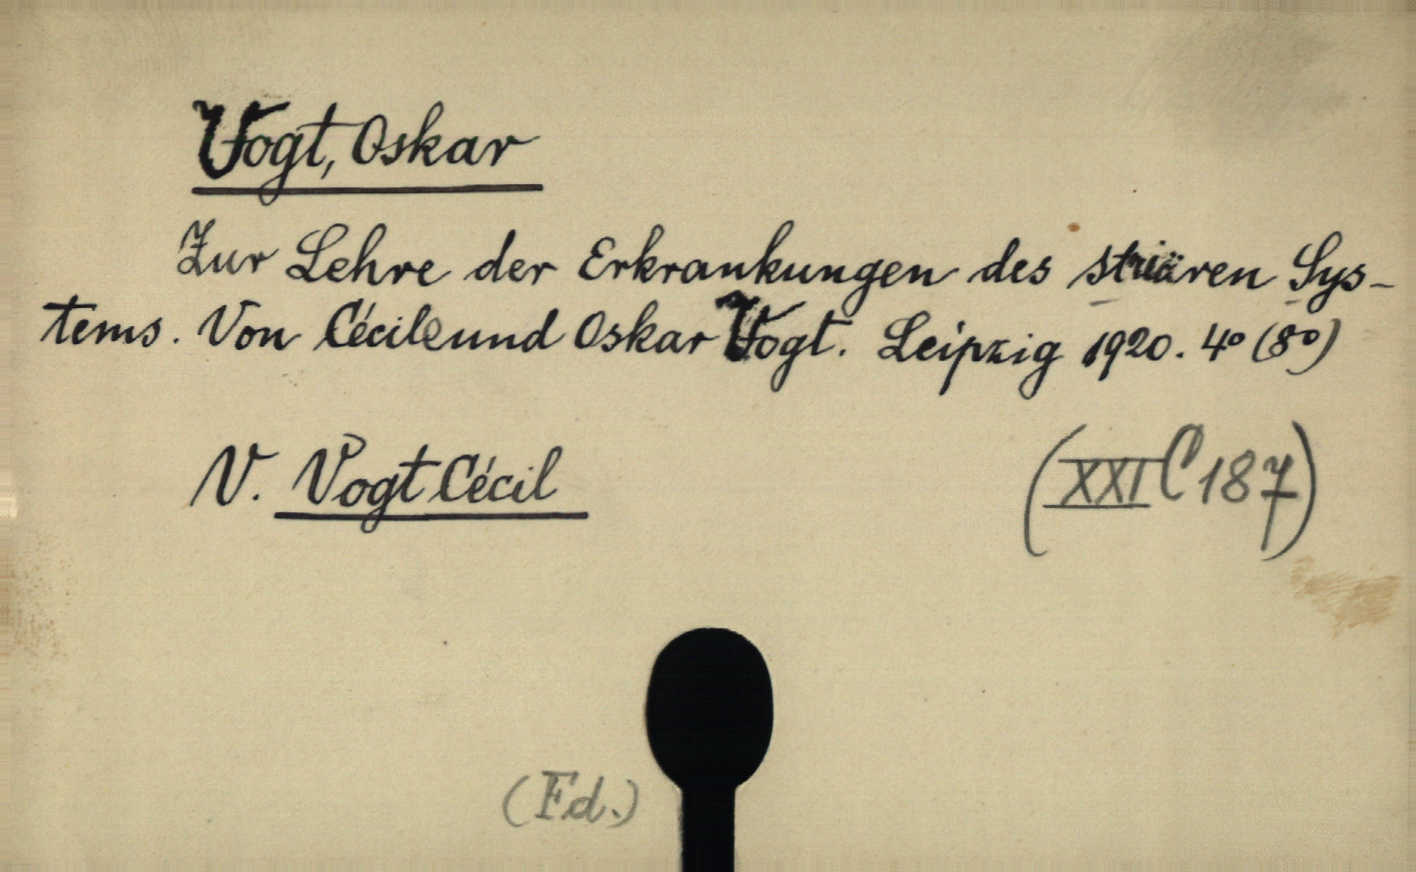 Vogt, Oskar
Zur Lehre der Erkrankungen des striären Sys-
tems. Von Cécile und Oskar Vogt. Leipzig 1920. 4° (8°)
V. Vogt Cécil
(XXI C 187)
(Fd.)